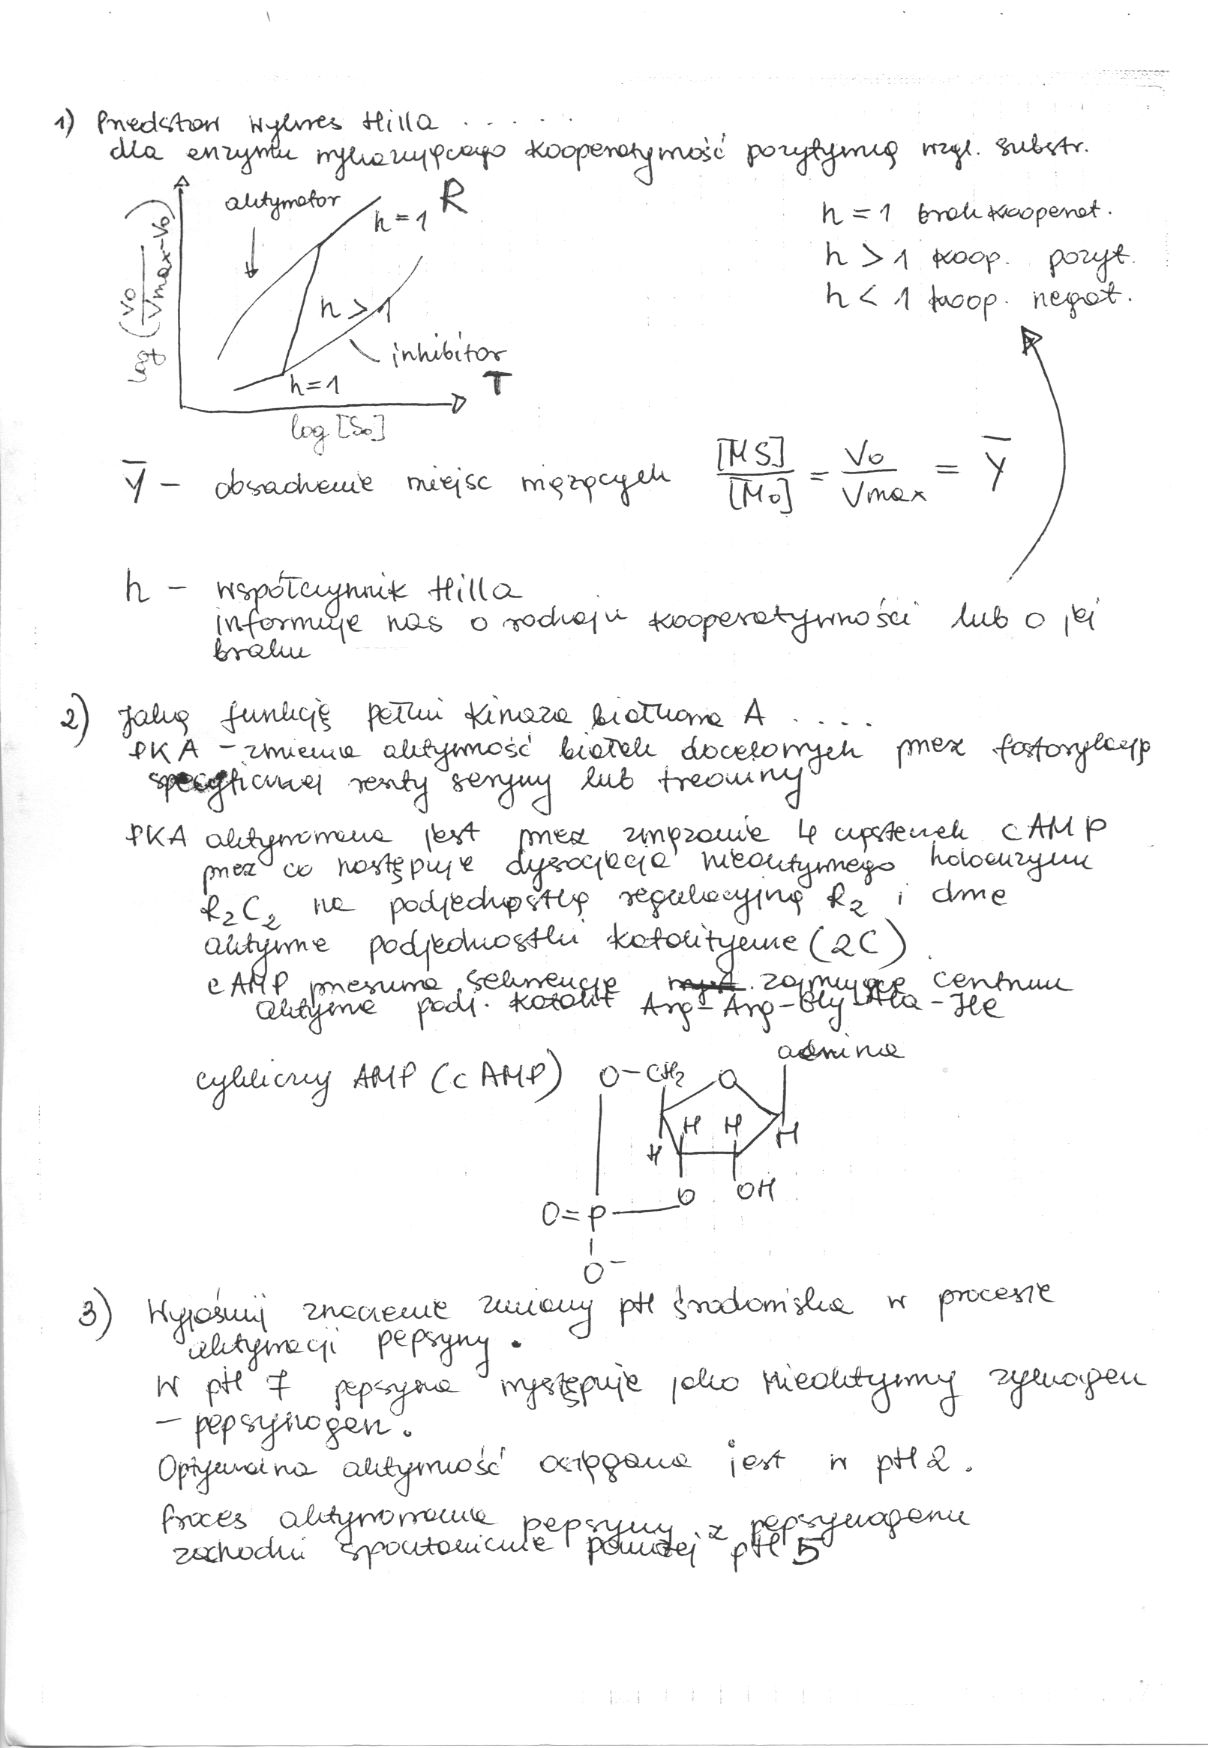 1) Przedstaw wykres Hilla . . . . . .
dla enzymu wykazującego kooperatywność pozytywną wzgl. substr.
aktywator
h = 1 R
h = 1 brak kooperat.
h > 1 koop. pozyt.
h < 1 koop. negat.
log (V₀ / Vmax - V₀)
h > 1
inhibitor
h = 1
T
log [S₀]
Ȳ – obsadzenie miejsc wiążących [MS] / [M₀] = V₀ / Vmax = Ȳ
h – współczynnik Hilla
informuje nas o rodzaju kooperatywności lub o jej
braku
2) Jaką funkcję pełni kinaza białkowa A . . . .
PKA – zmienia aktywność białek docelowych przez fosforylację
specyficznej reszty seryny lub treoniny
PKA aktywowana jest przez związanie 4 cząsteczek cAMP
przez co następuje dysocjacja nieaktywnego holoenzymu
R₂C₂ na podjednostkę regulacyjną R₂ i dwie
aktywne podjednostki katalityczne (2C)
cAMP przesuwa sekwencję zajmującą centrum
aktywne podj. katalit Arg – Arg – Gly – Ala – Ile
cykliczny AMP (cAMP)
O – CH₂ O adenina
H H H H
O OH
O = P
O⁻
3) Wyjaśnij znaczenie zmiany pH środowiska w procesie
aktywacji pepsyny.
W pH 7 pepsyna występuje jako nieaktywny zymogen
– pepsynogen.
Optymalna aktywność osiągana jest w pH 2.
Proces aktywowania pepsyny z pepsynogenu
zachodzi spontanicznie poniżej pH 5